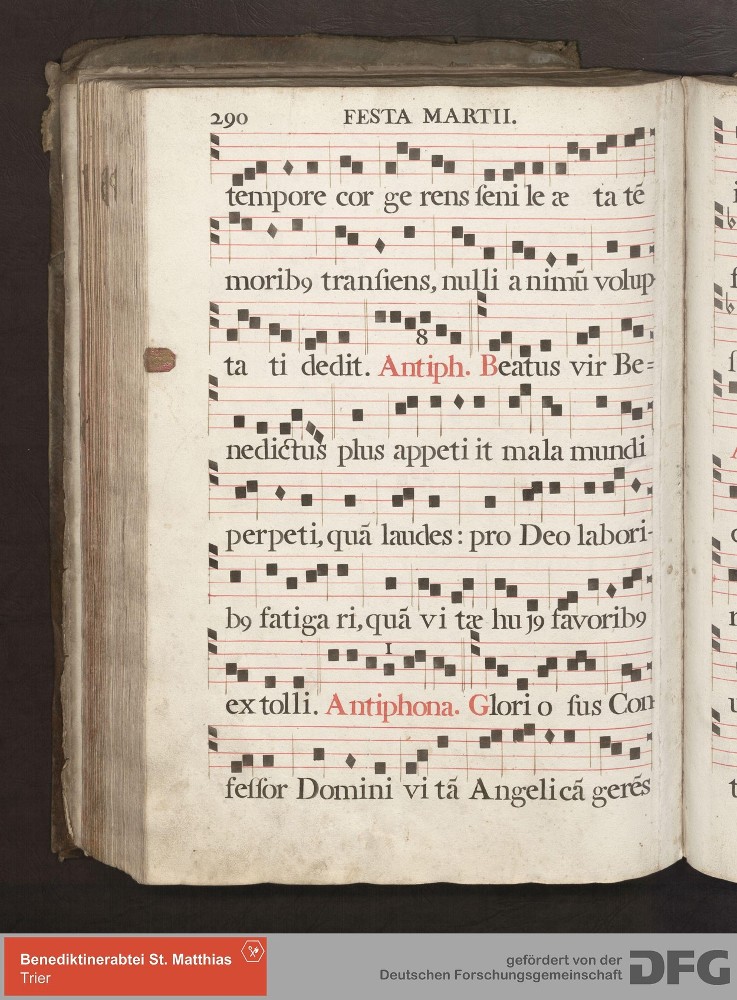 290 FESTA MARTII.
tempore cor ge rens ſeni le æ ta tē
morib9 tranſiens, nulli a nimū volup
8
ta ti dedit. Antiph. Beatus vir Be=
nedictus plus appeti it mala mundi
perpeti, quā laudes: pro Deo labori-
b9 fatiga ri, quā vi tæ hu j9 favorib9
1
ex tolli. Antiphona. Glori o ſus Con-
feſſor Domini vi tā Angelicā gerēs
Benediktinerabtei St. Matthias
Trier
gefördert von der
Deutschen Forschungsgemeinschaft
DFG